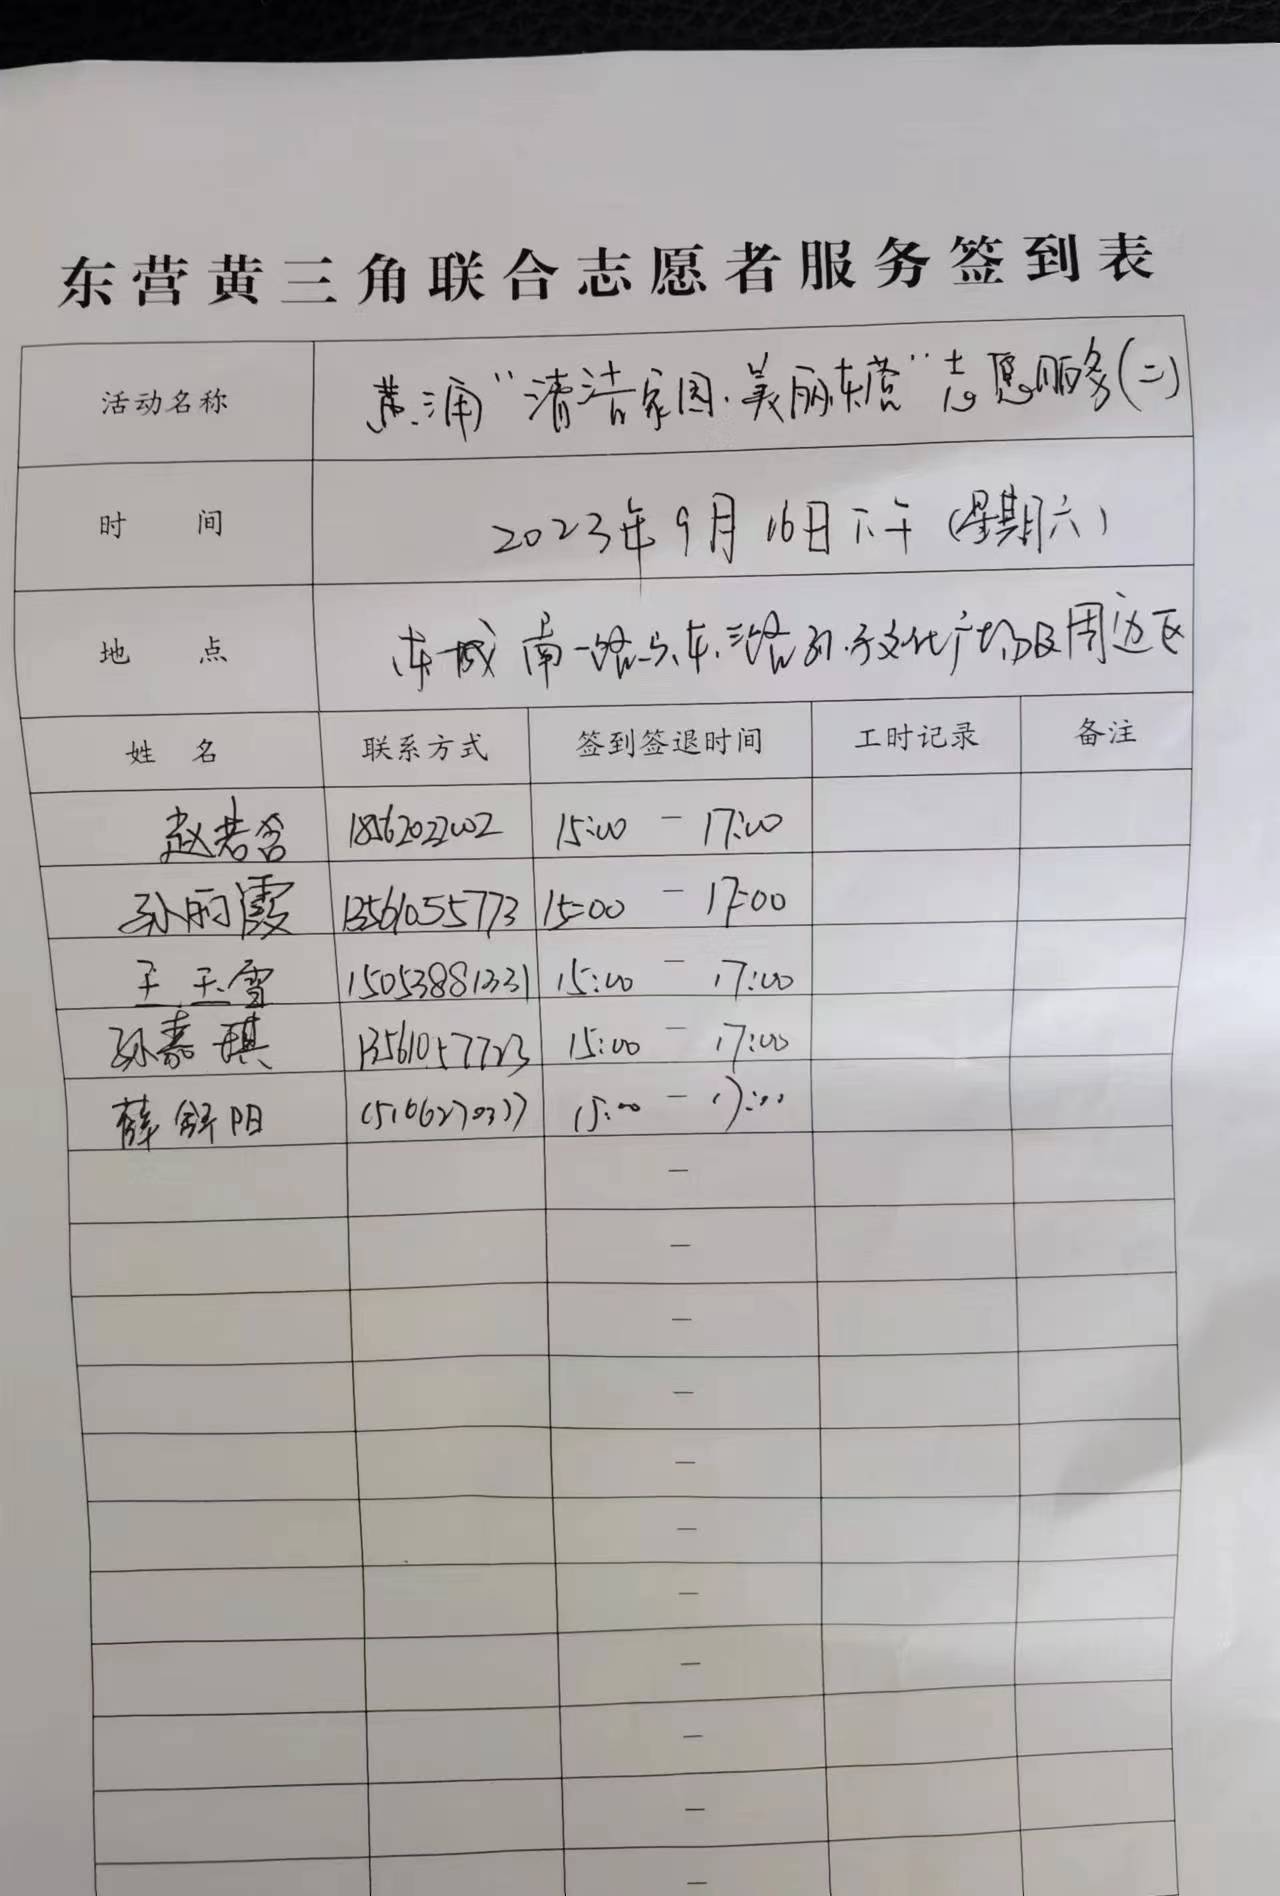 东营黄三角联合志愿者服务签到表
活动名称 "清洁家园·美丽东营"志愿服务(二)
时 间 2023年9月16日下午(星期六)
地 点 东城南一路与东三路孙子文化广场及周边区
姓 名 联系方式 签到签退时间 工时记录 备注
赵若含 15:00 — 17:00
孙丽霞 13561055773 15:00 — 17:00
王玉雪 15053881331 15:00 — 17:00
孙嘉琪 13561057723 15:00 — 17:00
薛舒阳 15:00 — 17:00
—
—
—
—
—
—
—
—
—
—
—